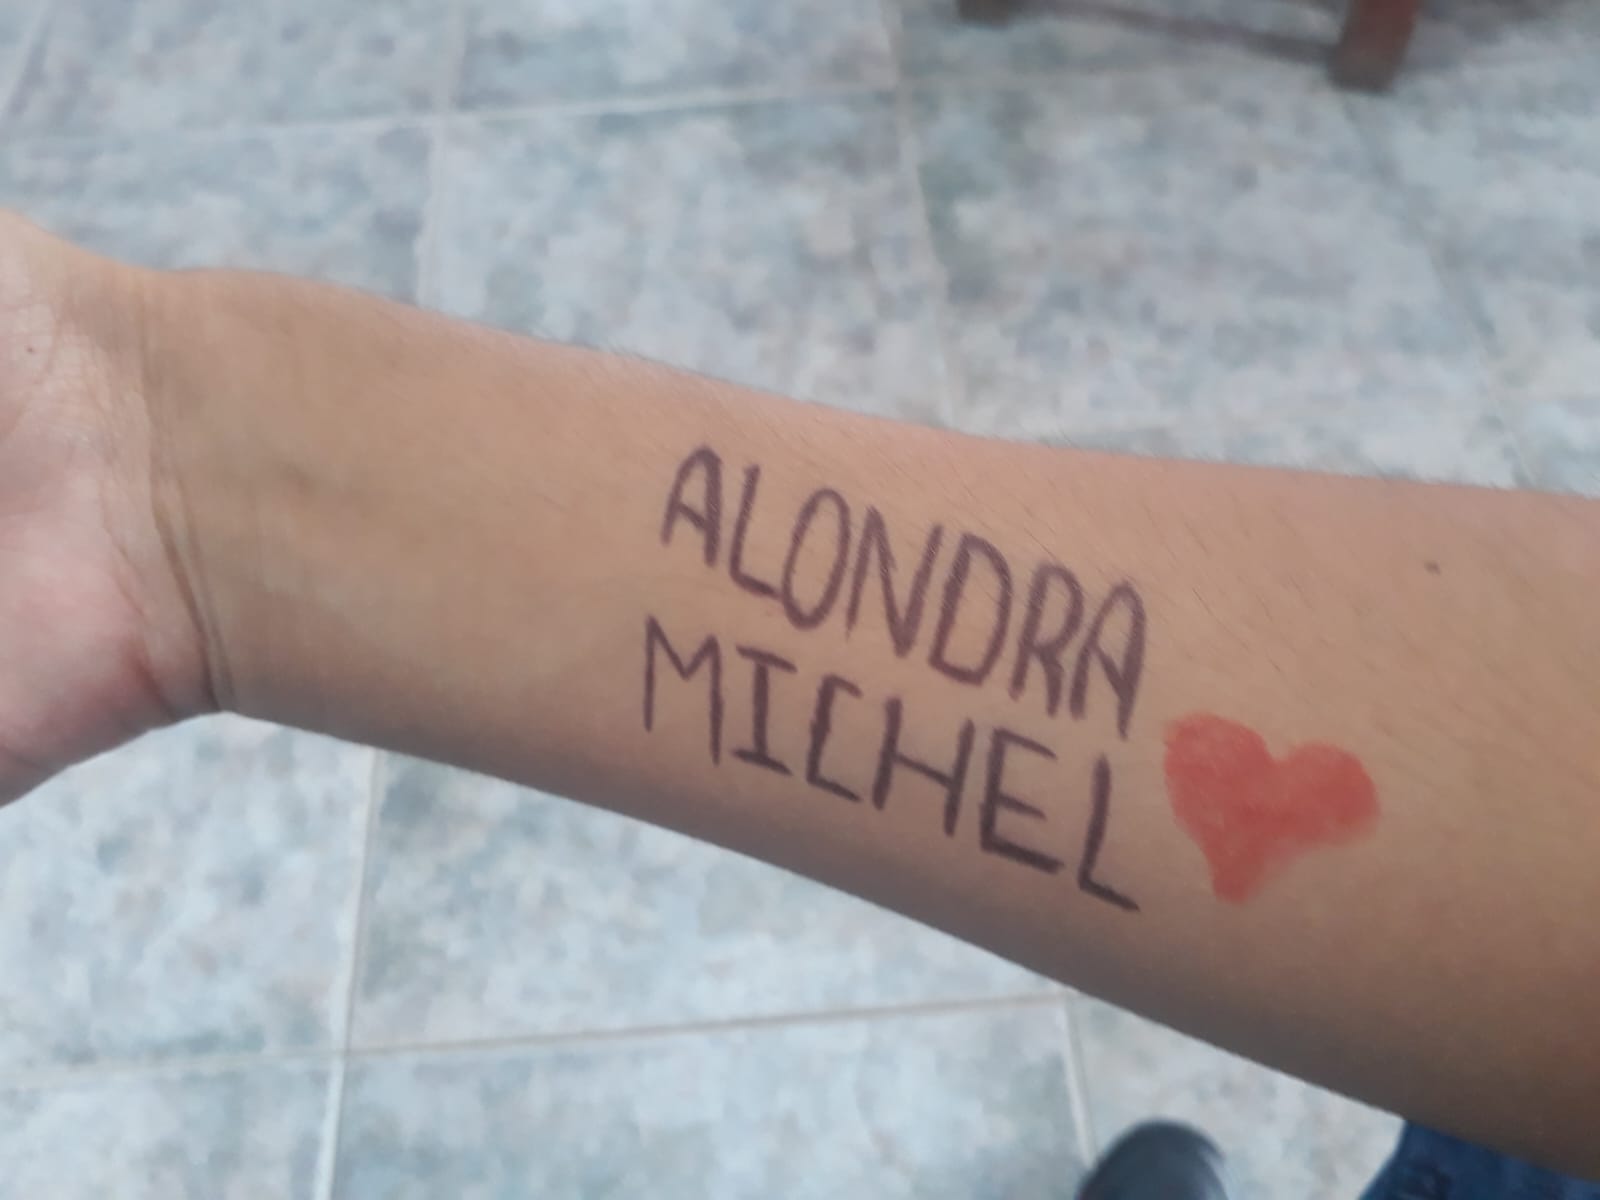 ALONDRA
MICHEL